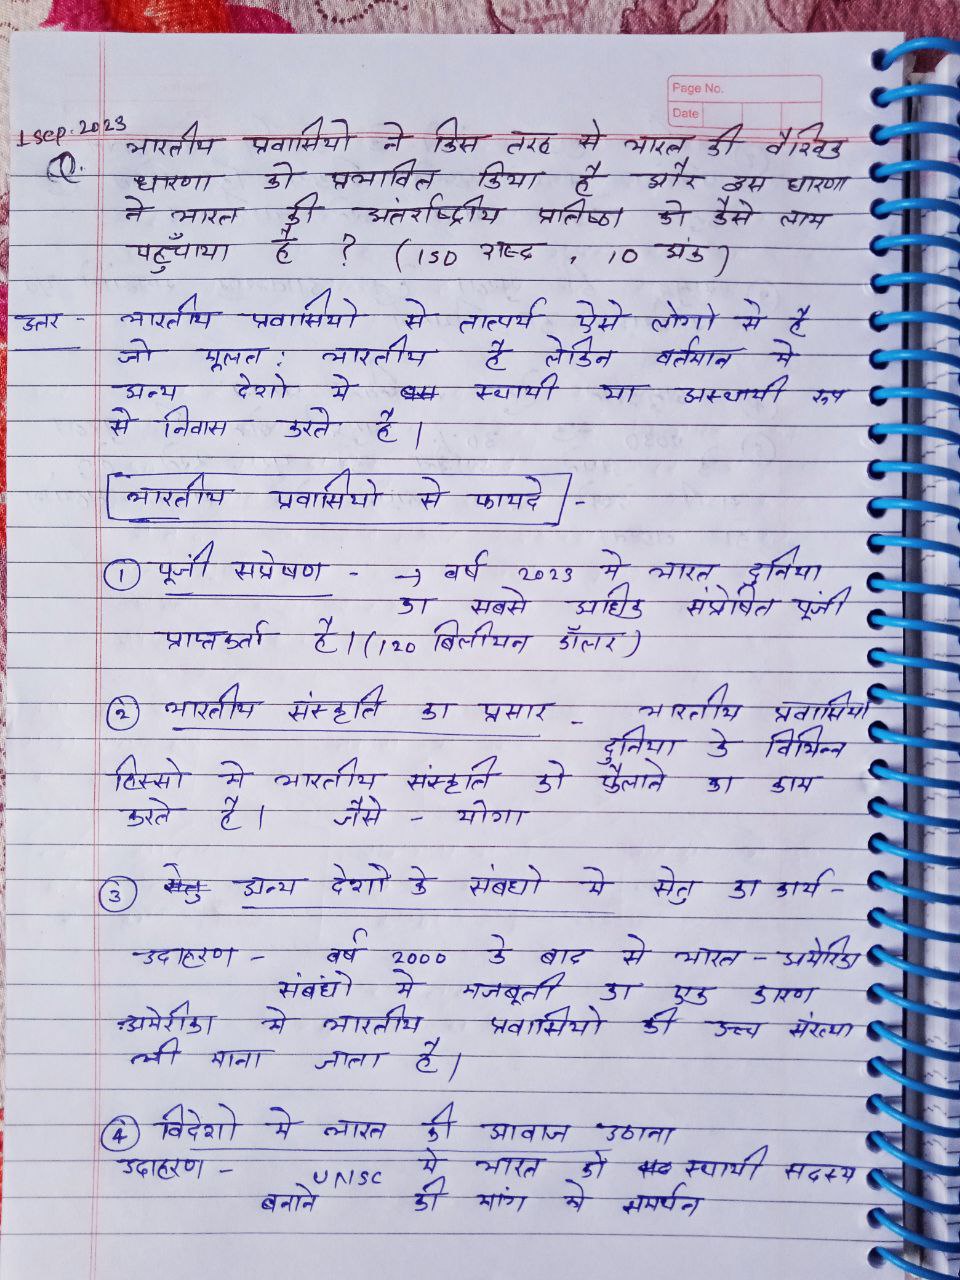 Page No.
Date
1 Sep. 2023
Q. भारतीय प्रवासियो ने किस तरह से भारत की वैश्विक
धारणा को प्रभावित किया है और इस धारणा
ने भारत की अंतर्राष्ट्रीय प्रतिष्ठा को कैसे लाभ
पहुँचाया है ? (150 शब्द, 10 अंक)
उतर - भारतीय प्रवासियो से तात्पर्य ऐसे लोगो से है
जो मूलत: भारतीय है लेकिन वर्तमान मे
अन्य देशो मे स्थायी या अस्थायी रूप
से निवास करते है।
भारतीय प्रवासियो से फायदे -
① पूंजी सप्रेषण - → वर्ष 2023 मे भारत दुनिया
का सबसे अधिक संप्रेषित पूंजी
प्राप्तकर्ता है। (120 बिलीयन डॉलर)
② भारतीय संस्कृति का प्रसार - भारतीय प्रवासियो
दुनिया के विभिन्न
हिस्सो मे भारतीय संस्कृति को फैलाने का काम
करते है। जैसे - योगा
③ सेतु अन्य देशो के संबधो मे सेतु का कार्य -
उदाहरण - वर्ष 2000 के बाद से भारत - अमेरिका
संबंधो मे मजबूती का एक कारण
अमेरीका मे भारतीय प्रवासियो की उच्च संख्या
भी माना जाता है।
④ विदेशो मे भारत की आवाज उठाना
उदाहरण - UNSC मे भारत को स्थायी सदस्य
बनाने की मांग मे समर्थन